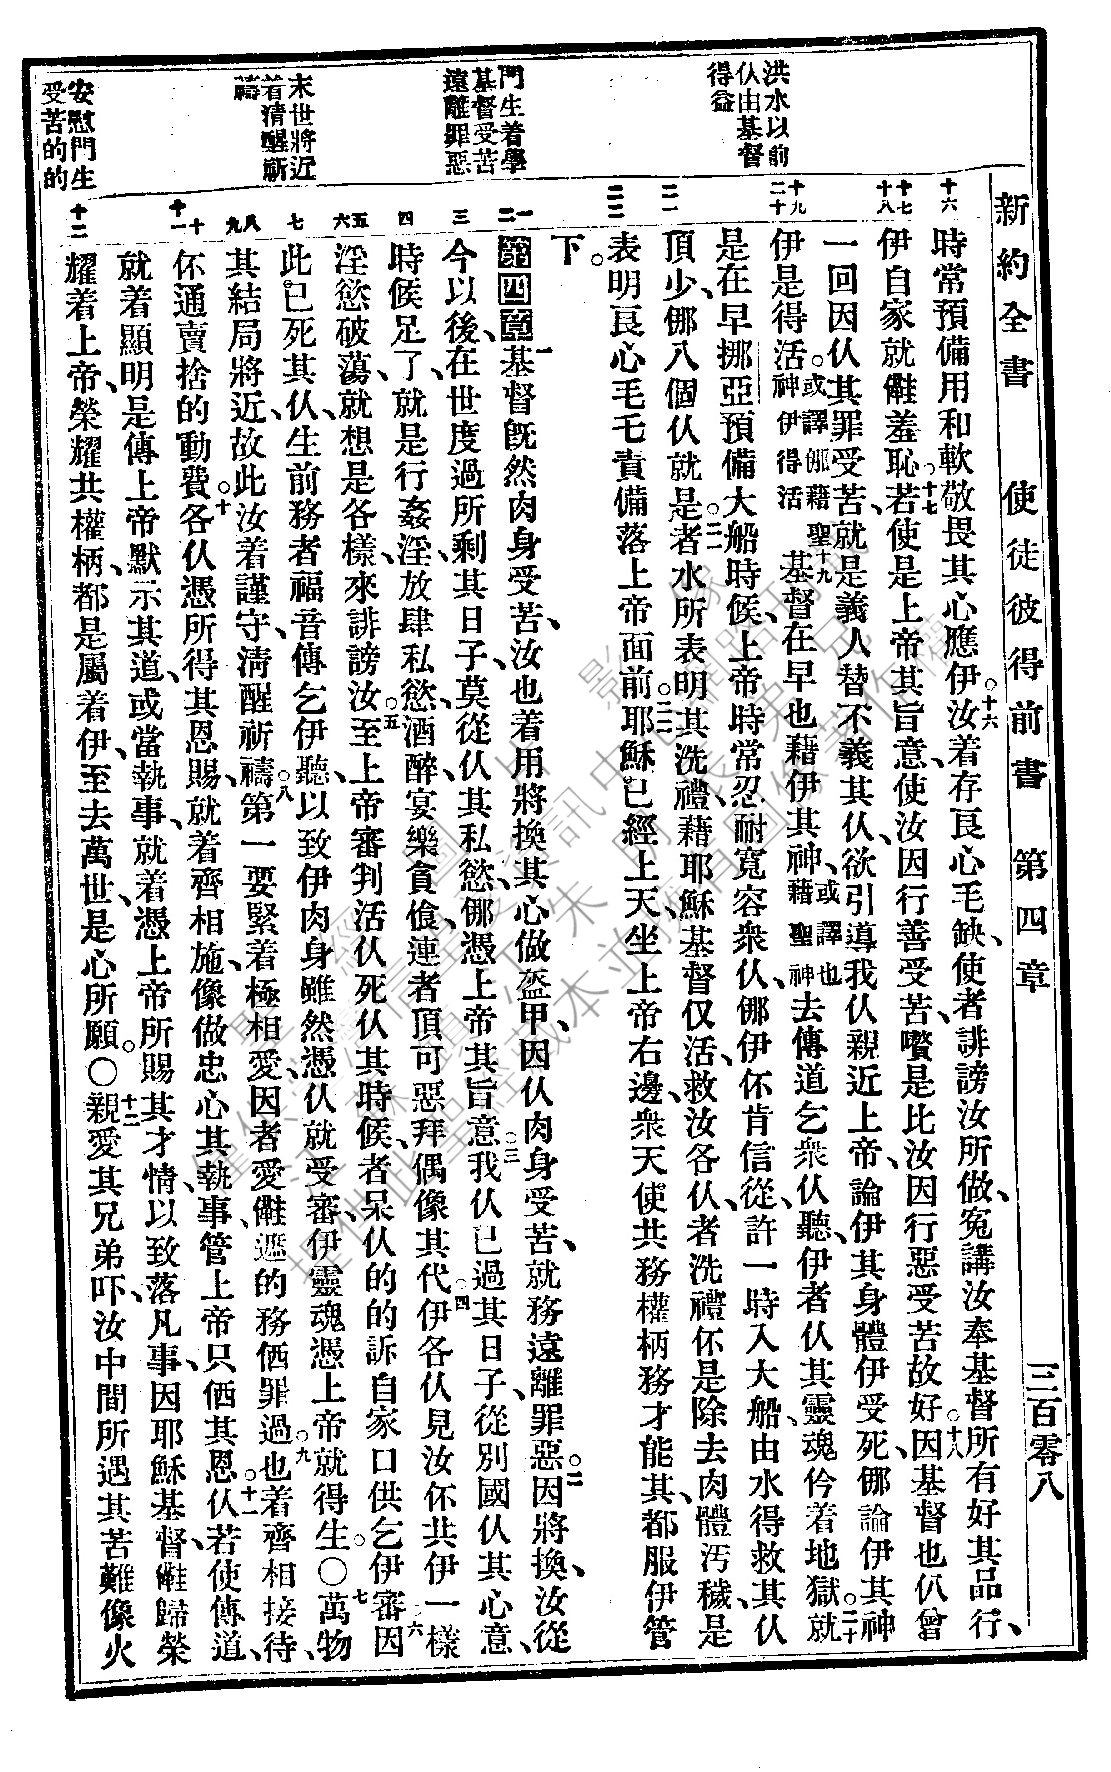 新約全書 使徒彼得前書 第四章 三百零八
洪水以前
仈由基督
得益
門生着學
基督受苦
遠離罪惡
末世將近
着清醒祈
禱
安慰門生
受苦的的
十六
十七
十八
十九
二十
二一
二二
一
二
三
四
五
六
七
八
九
十
十一
十二
時常預備用和軟敬畏其心應伊。十六汝着存良心毛缺、使者誹謗汝所做、冤講汝奉基督所有好其品行、
伊自家就㑚羞恥。十七若使是上帝其旨意、使汝因行善受苦、嚽是比汝因行惡受苦故好。十八因基督也仈曾
一回因仈其罪受苦、就是義人替不義其仈、欲引導我仈親近上帝、論伊其身體伊受死、㑚論伊其神
伊是得活。或譯㑚藉聖神伊得活 十九基督在早也藉伊其神、或譯也藉聖神去傳道乞衆仈聽、伊者仈其靈魂仱着地獄。二十就
是在早挪亞預備大船時候、上帝時常忍耐寬容衆仈、㑚伊伓肯信從、許一時入大船由水得救其仈
頂少、㑚八個仈就是。二一者水所表明其洗禮、藉耶穌基督仅活、救汝各仈、者洗禮伓是除去肉體汚穢、是
表明良心毛乇責備落上帝面前。二二耶穌已經上天、坐上帝右邊、衆天使共務權柄務才能其、都服伊管
下。
第四章 一基督旣然肉身受苦、汝也着用將換其心做盔甲、因仈肉身受苦、就務遠離罪惡。二因將換、汝從
今以後、在世度過所剩其日子、莫從仈其私慾、㑚憑上帝其旨意。三我仈已過其日子、從別國仈其心意、
時候足了、就是行姦淫、放肆私慾、酒醉、宴樂、貪飡、連者頂可惡拜偶像其代。四伊各仈見汝伓共伊一樣
淫慾破蕩、就想是各樣、來誹謗汝。五至上帝審判活仈死仈其時候、者呆仈的的訴自家口供乞伊審。六因
此已死其仈、生前務者福音傳乞伊聽、以致伊肉身雖然憑仈就受審、伊靈魂憑上帝就得生。〇七萬物
其結局將近、故此汝着謹守、淸醒祈禱。八第一要緊着極相愛、因者愛㑚遮的務価罪過。九也着齊相接待、
伓通賣捨的動費。十各仈憑所得其恩賜、就着齊相施、像做忠心其執事、管上帝只価其恩。十一仈若使傳道、
就着顯明是傳上帝默示其道、或當執事、就着憑上帝所賜其才情、以致落凡事、因耶穌基督、㑚歸榮
耀着上帝、榮耀共權柄都是屬着伊、至去萬世、是心所願。〇十二親愛其兄弟吓、汝中間所遇其苦難像火